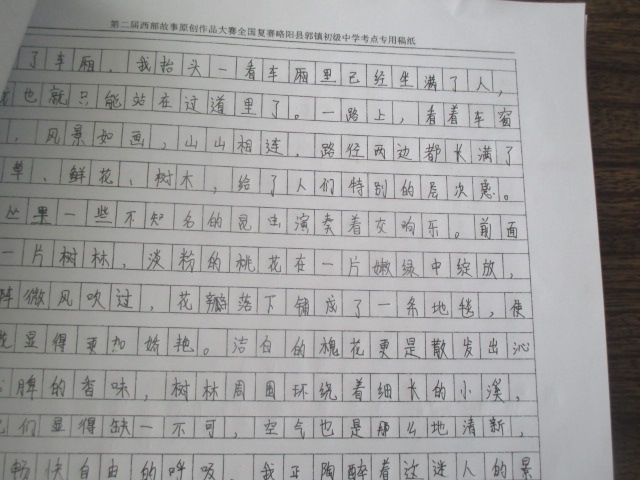 第二届西部故事原创作品大赛全国复赛略阳县郭镇初级中学考点专用稿纸
了车厢，我抬头一看车厢里已经坐满了人，
也就只能站在过道里了。一路上，看着车窗
，风景如画，山山相连，路径两边都长满了
草、鲜花、树木，给了人们特别的层次感。
丛里一些不知名的昆虫演奏着交响乐。前面
一片树林，淡粉的桃花在一片嫩绿中绽放，
阵微风吹过，花瓣落下铺成了一条地毯，使
显得更加娇艳。洁白的槐花更是散发出沁
脾的香味，树林周围环绕着细长的小溪，
们显得缺一不可，空气也是那么地清新，
畅快自由的呼吸，我正陶醉着这迷人的景